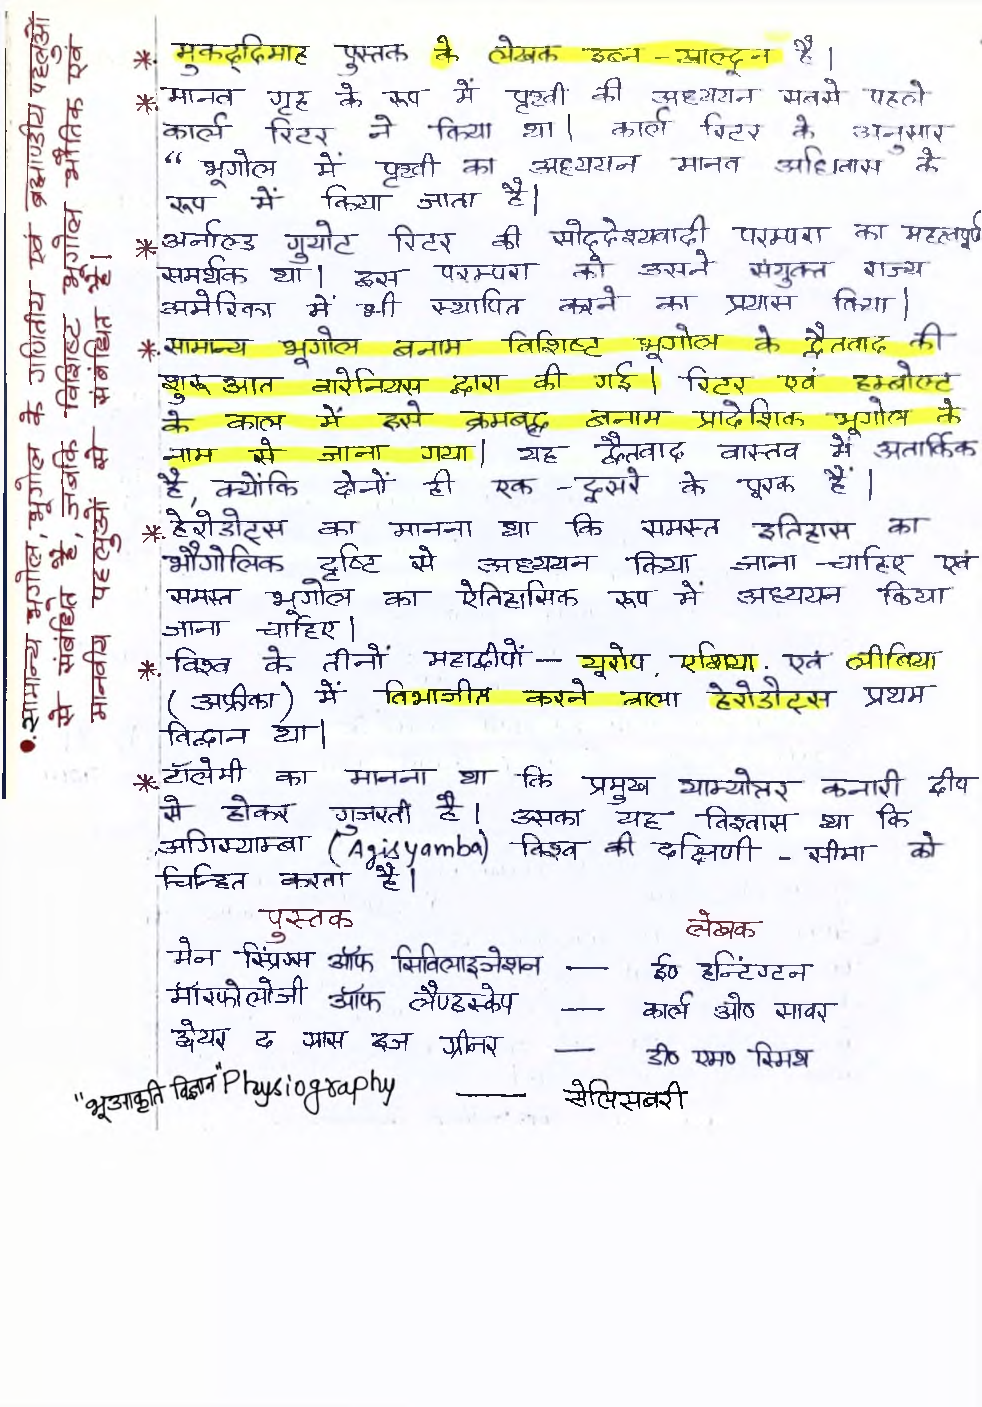 * मुकद्दिमाह पुस्तक के लेखक इब्न-खाल्दून है।
* मानव गृह के रूप में पृथ्वी की अध्ययन सबसे पहले
कार्ल रिटर ने किया था। कार्ल रिटर के अनुसार
“ भूगोल में पृथ्वी का अध्ययन मानव अधिवास के
रूप में किया जाता है।
* अर्नाल्ड गुयोट रिटर की सोद्देश्यवादी परम्परा का महत्वपूर्ण
समर्थक था। इस परम्परा को उसने संयुक्त राज्य
अमेरिका में भी स्थापित करने का प्रयास किया।
* सामान्य भूगोल बनाम विशिष्ट भूगोल के द्वैतवाद की
शुरूआत वारेनियस द्वारा की गई। रिटर एवं हम्बोल्ट
के काल में इसे क्रमबद्ध बनाम प्रादेशिक भूगोल के
नाम से जाना गया। यह द्वैतवाद वास्तव में अतार्किक
है, क्योंकि दोनों ही एक-दूसरे के पूरक हैं।
* हेरोडोट्स का मानना था कि समस्त इतिहास का
भौगोलिक दृष्टि से अध्ययन किया जाना चाहिए एवं
समस्त भूगोल का ऐतिहासिक रूप में अध्ययन किया
जाना चाहिए।
* विश्व के तीनों महाद्वीपों - यूरोप, एशिया. एवं लीबिया
(अफ्रीका) में विभाजीत करने वाला हेरोडोट्स प्रथम
विद्वान था।
* टॉलेमी का मानना था कि प्रमुख याम्योत्तर कनारी द्वीप
से होकर गुजरती है। उसका यह विश्वास था कि
अगिस्याम्बा (Agisyamba) विश्व की दक्षिणी - सीमा को
चिन्हित करता है।
पुस्तक लेखक
मेन स्प्रिंग्स ऑफ सिविलाइजेशन — ई० हन्टिंग्टन
मॉरफोलोजी ऑफ लैण्डस्केप — कार्ल ओ० सावर
व्हेयर द ग्रास इज ग्रीनर — डी० एम० स्मिथ
"भूआकृति विज्ञान" Physiography — सेलिसबरी
• सामान्य भूगोल, भूगोल के गणितीय एवं ब्रह्माण्डीय पहलूओं
से संबंधित है, जबकि विशिष्ट भूगोल भौतिक एवं
मानवीय पहलुओं से संबंधित है।